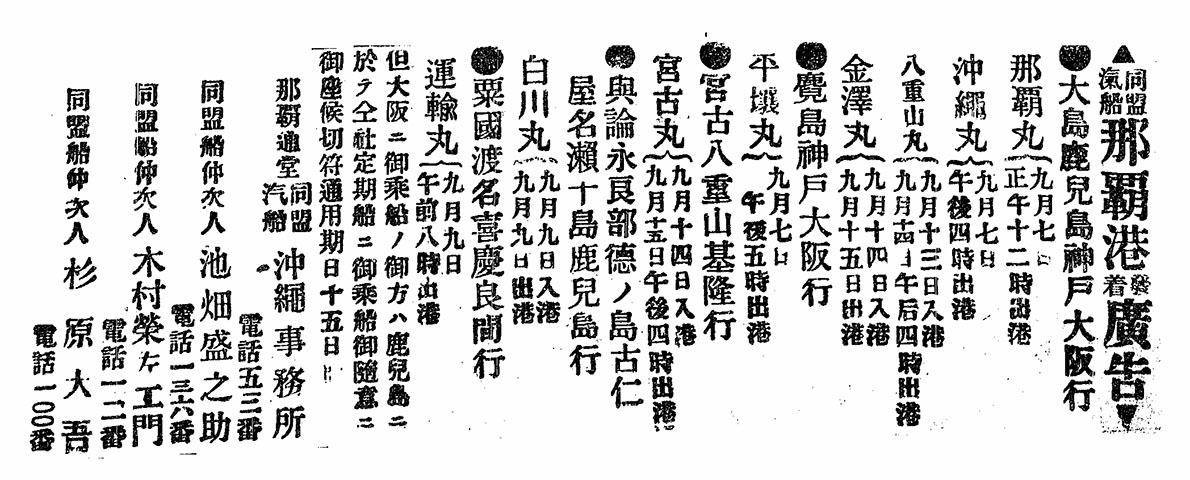 ▲同盟汽船那覇港發着廣告▼
●大島鹿兒島神戸大阪行
那覇丸 九月七日
正午十二時出港
沖繩丸 九月七日
午後四時出港
八重山丸 九月十三日入港
九月十四日午后四時出港
金澤丸 九月十四日入港
九月十五日出港
●鹿島神戸大阪行
平壤丸 九月七日
午後五時出港
●宮古八重山基隆行
宮古丸 九月十四日入港
九月十五日午後四時出港
●與論永良部德ノ島古仁
屋名瀨十島鹿兒島行
白川丸 九月九日入港
九月九日出港
●粟國渡名喜慶良間行
運輸丸 九月九日
午前八時出港
但大阪ニ御乘船ノ御方ハ鹿兒島ニ
於テ仝社定期船ニ御乘船御隨意ニ
御座候切符通用期日十五日
那覇通堂 同盟汽船 沖繩事務所
電話五三番
同盟船仲次人 池畑盛之助
電話一三六番
同盟船仲次人 木村榮左工門
電話一一二番
同盟船仲次人 杉原大吾
電話一〇〇番